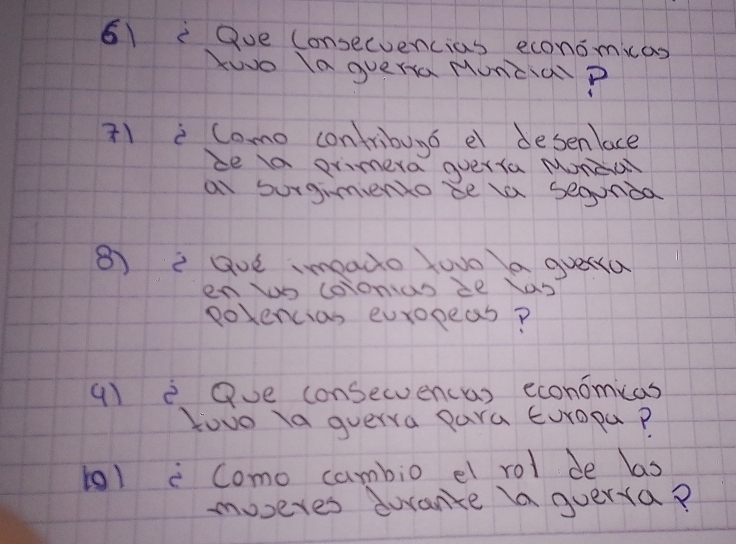 6) ¿ Que consecuencias económicas
tuvo la guerra Mundial ?
7) ¿ Como contribuyó el desenlace
de la primera guerra Mundial
al surgimiento de la segunda
8) ¿ Qué impacto tuvo la guerra
en las colonias de las
potencias europeas ?
9) ¿ Que consecuencias económicas
tuvo la guerra para Europa ?
10) ¿ Como cambio el rol de las
mujeres durante la guerra ?